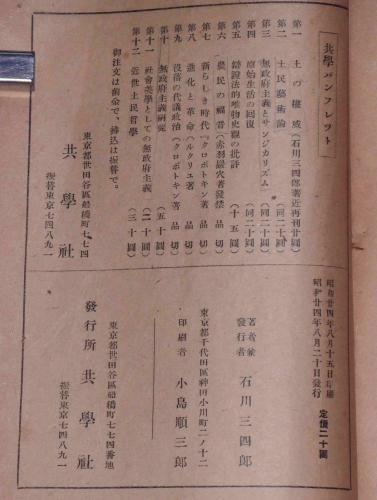 共學パンフレット
第一 土の權威(石川三四郎著近再刊廿圓)
第二 土民藝術論(同二十圓)
第三 無政府主義とサンジカリズム(同二十圓)
第四 原始生活の回復(同二十圓)
第五 辯證法的唯物史觀の批評(十五圓)
第六 農民の福音(赤羽巖穴著發禁品切)
第七 新らしき時代(クロポトキン著品切)
第八 進化と革命(ルクリユ著品切)
第九 沒落の代議政治(クロポトキン著品切)
第十 無政府主義研究(五十圓)
第十一 社會美學としての無政府主義(二十圓)
第十二 近世土民哲學(三十圓)
御注文は前金で、拂込は振替で。
東京都世田谷區船橋町七七四
共學社
振替東京七四八九一
昭和廿四年八月十五日印刷
昭和廿四年八月二十日發行
定價二十圓
著者兼
發行者 石川三四郎
東京都千代田區神田小川町二ノ十二
印刷者 小島順三郎
東京都世田谷區船橋町七七四番地
發行所 共學社
振替東京七四八九一